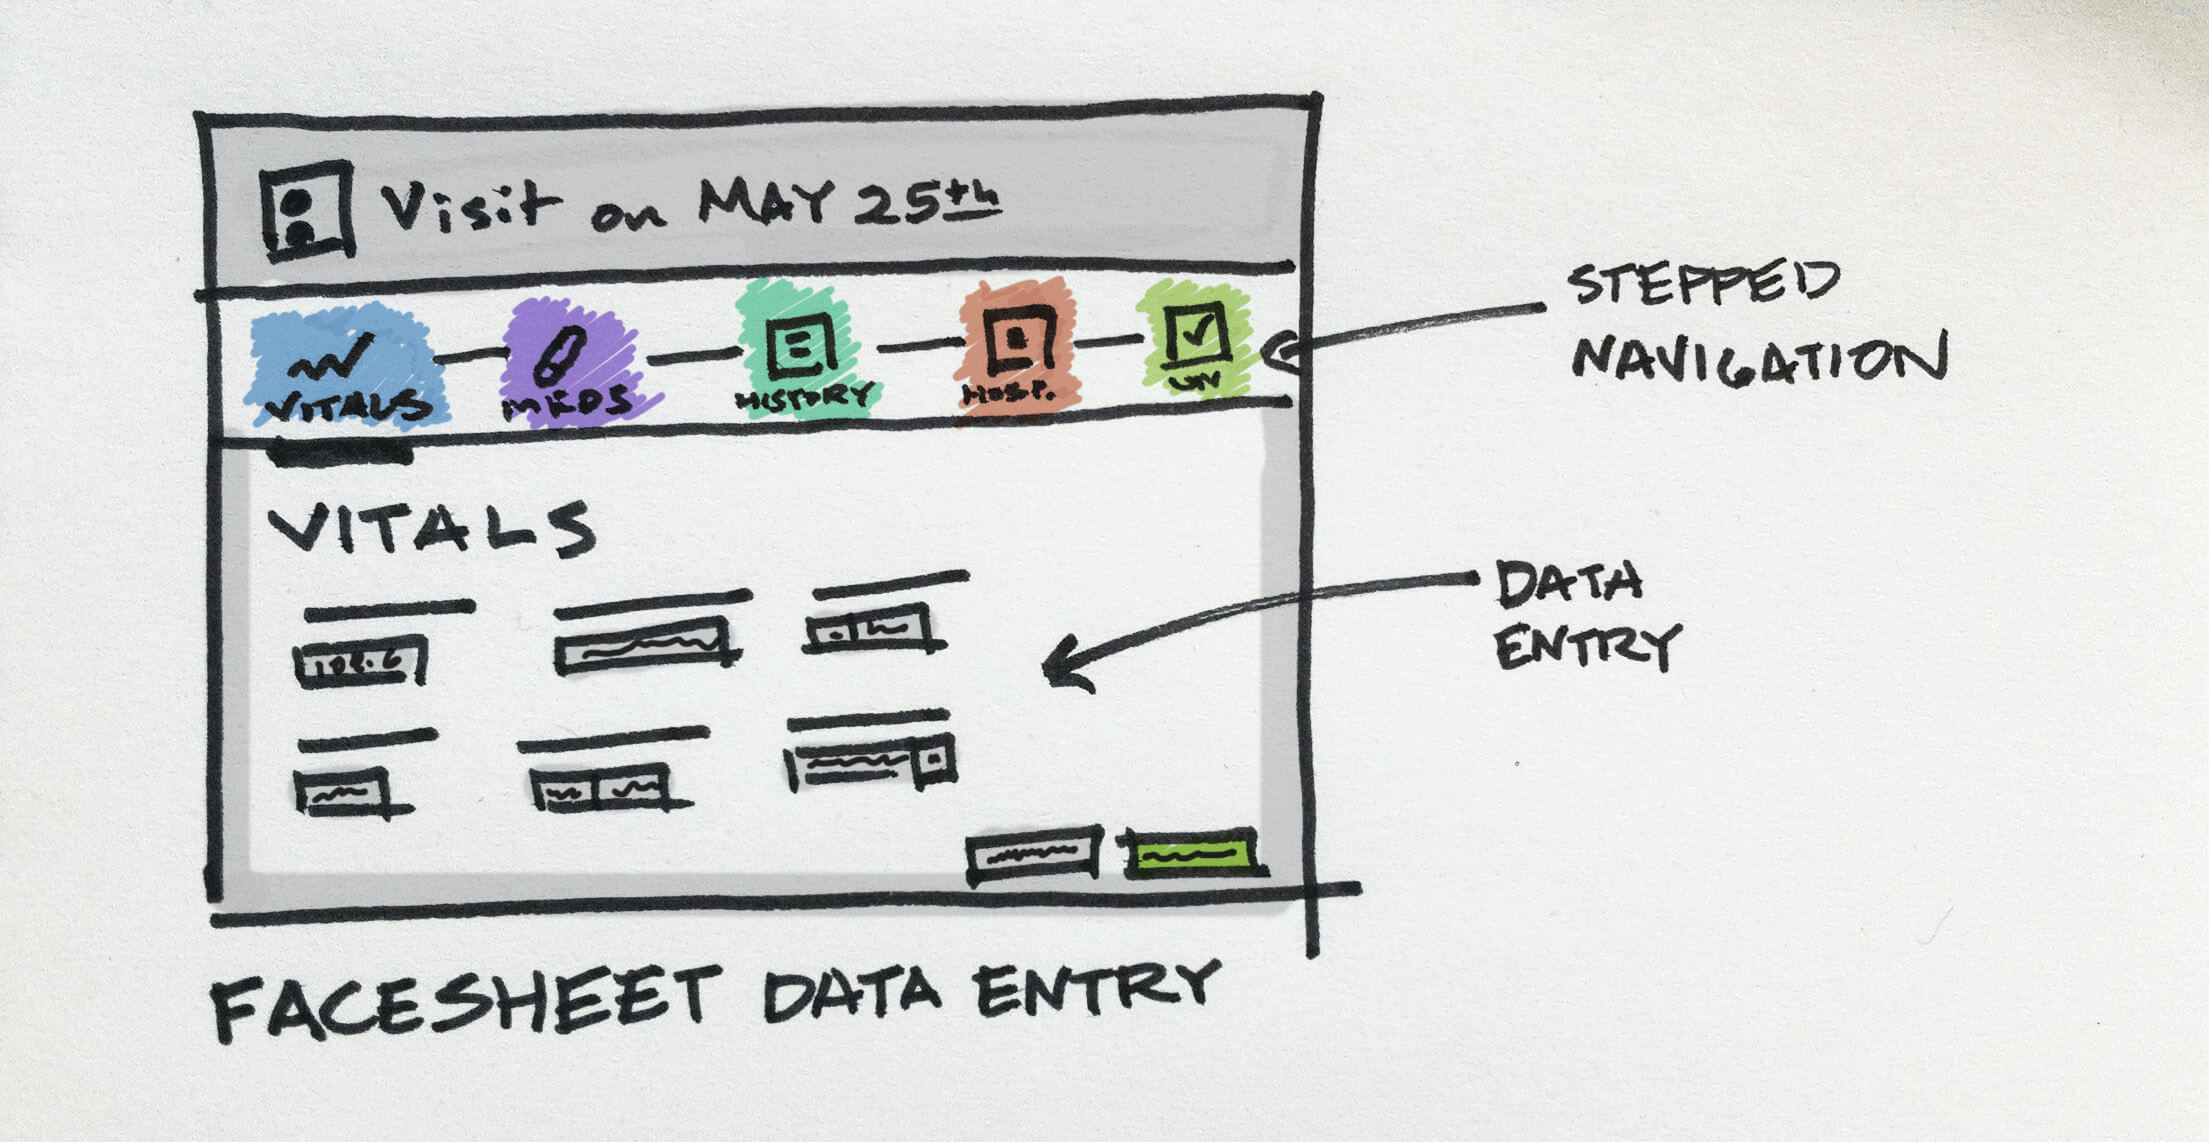 Visit on MAY 25th
VITALS
MEDS
HISTORY
HOSP.
VITALS
STEPPED
NAVIGATION
DATA
ENTRY
FACESHEET DATA ENTRY